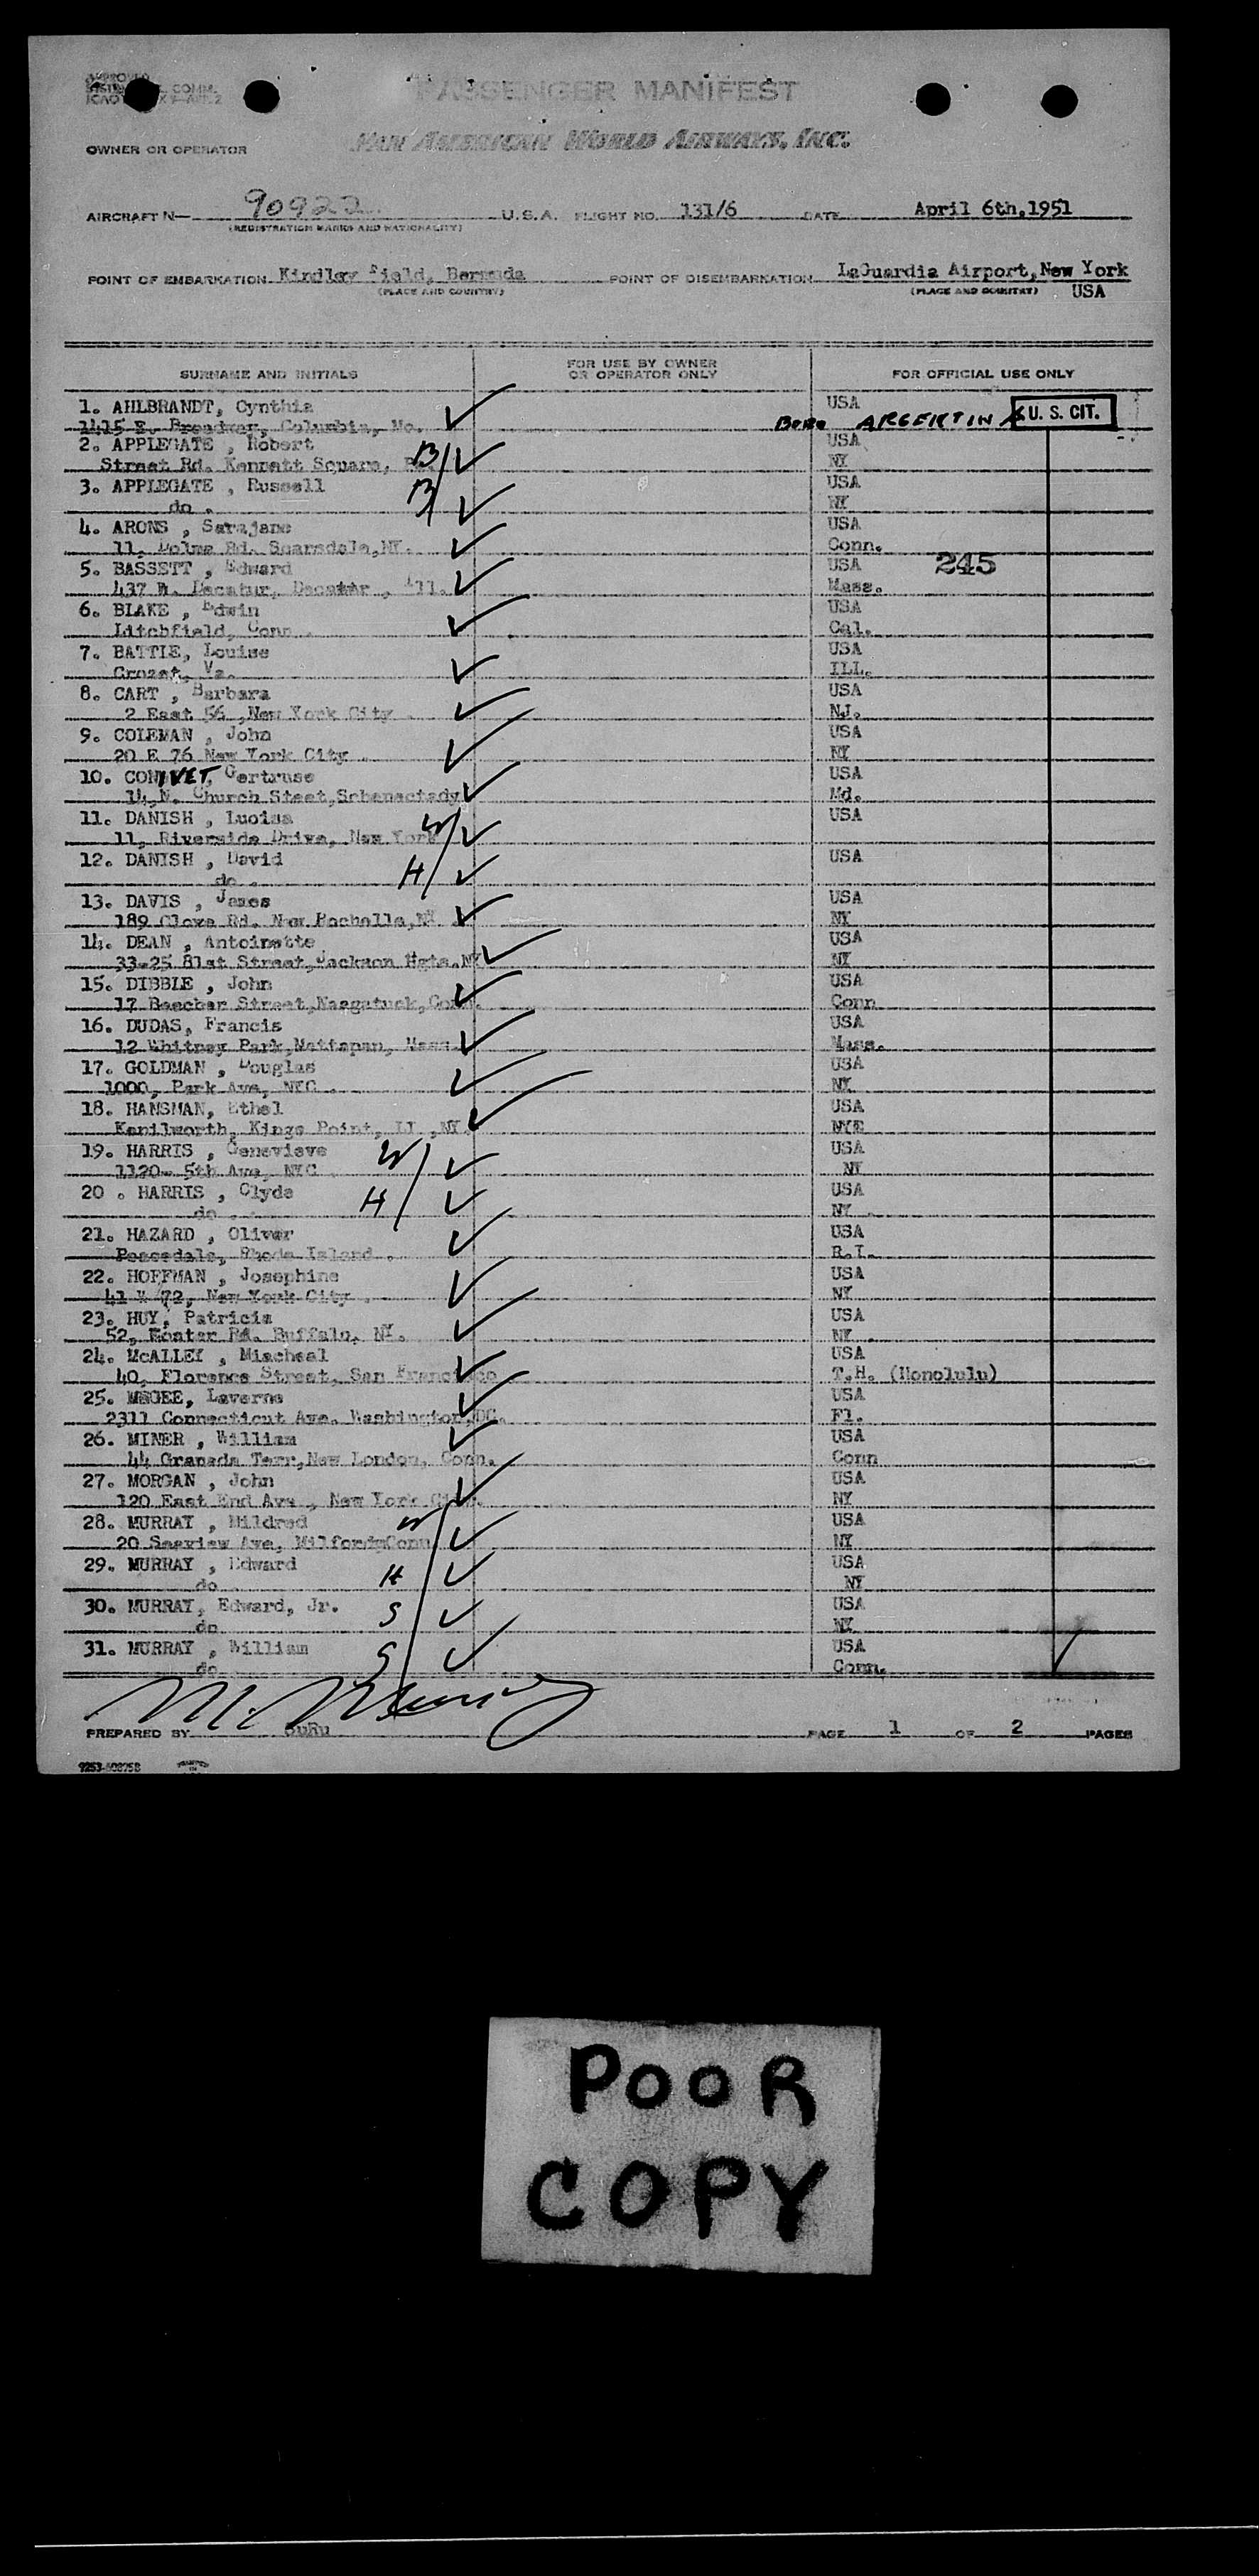 APPROVED
COMM.
ICAO
PASSENGER MANIFEST
OWNER OR OPERATOR PAN AMERICAN WORLD AIRWAYS, INC.
AIRCRAFT N— 90922 U.S.A. FLIGHT NO. 131/6 DATE April 6th,1951
(REGISTRATION MARKS AND NATIONALITY)
POINT OF EMBARKATION Kindley Field, Bermuda POINT OF DISEMBARKATION LaGuardia Airport,New York
(PLACE AND COUNTRY) (PLACE AND COUNTRY) USA
SURNAME AND INITIALS FOR USE BY OWNER OR OPERATOR ONLY FOR OFFICIAL USE ONLY
1. AHLBRANDT, Cynthia USA
1415 E. Broadway, Columbia, Mo. BORN ARGENTINA U. S. CIT.
2. APPLEGATE , Robert B USA
Street Rd. Kennett Square, NY
3. APPLEGATE , Russell B USA
do . NY
4. ARONS , Sarajane USA
11, Rd. Scarsdale,NY. Conn.
5. BASSETT , Edward USA 245
437 W. Decatur, Decatur , Ill. Mass.
6. BLAKE , Edwin USA
Litchfield, Conn . Cal.
7. BATTIE, Louise USA
Crozet, Va. ILL.
8. CART , Barbara USA
2 East 56 ,New York City . NJ.
9. COLEMAN , John USA
20 E 76 New York City . NY
10. CONIVET, Gertruse USA
14,N. Church Steet,Schenectady Md.
11. DANISH , Luoisa W USA
11, Riverside Drive, New York
12. DANISH , David H USA
do .
13. DAVIS , James USA
189 Clove Rd. New Rochelle,NY NY
14. DEAN , Antoinette USA
33-25 81st Street,Jackson Hgts.NY NY
15. DIBBLE , John USA
17 Beecher Street,Naugatuck,Conn. Conn
16. DUDAS, Francis USA
12 Whitney Park,Mattapan, Mass. Mass.
17. GOLDMAN , Douglas USA
1000, Park Ave, NYC . NY
18. HANSMAN, Ethel USA
Kenilworth, Kings Point, LI ,NY. NYC
19. HARRIS , Genevieve W USA
1120- 5th Ave, NYC NY
20 . HARRIS , Clyde H USA
do . NY .
21. HAZARD , Oliver USA
Peacedale, Rhode Island . R.I.
22. HOFFMAN , Josephine USA
41 W 72, New York City . NY
23. HUY, Patricia USA
52, Rd. Buffalo, NY. NY .
24. McALLEY , Miacheal USA
40, Florence Street, San Francisco T.H. (Honolulu)
25. MEGEE, Laverne USA
2311 Connecticut Ave. Washington,DC. Fl.
26. MINER , William USA
44 Granada Terr,New London, Conn. Conn
27. MORGAN , John USA
120 East End Ave , New York City. NY
28. MURRAY , Mildred W USA
20 Seaview Ave, Milford,Conn NY
29. MURRAY , Edward H USA
do NY
30. MURRAY, Edward, Jr. S USA
do NY
31. MURRAY , William S USA
do Conn.
PREPARED BY PAGE 1 OF 2 PAGES
POOR
COPY